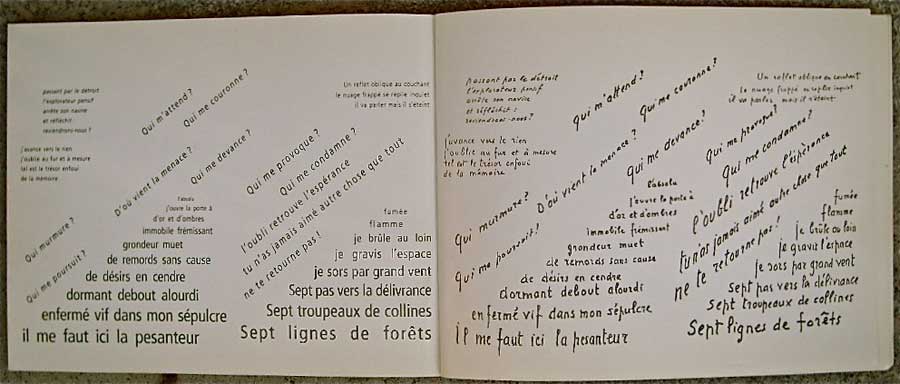 passant par le détroit
l'explorateur pensif
arrête son navire
et réfléchit :
reviendrons-nous ?
Qui m'attend ?
Qui me couronne ?
Un reflet oblique au couchant
le nuage frappé se replie inquiet
il va parler mais il s'éteint
j'avance vers le rien
j'oublie au fur et à mesure
tel est le trésor enfoui
de la mémoire
D'où vient la menace ?
Qui me devance ?
Qui me provoque ?
Qui me condamne ?
l'oubli retrouve l'espérance
tu n'as jamais aimé autre chose que tout
ne te retourne pas !
Qui murmure ?
Qui me poursuit ?
l'absolu
j'ouvre la porte à
d'or et d'ombres
immobile frémissant
grondeur muet
de remords sans cause
de désirs en cendre
dormant debout alourdi
enfermé vif dans mon sépulcre
il me faut ici la pesanteur
fumée
flamme
je brûle au loin
je gravis l'espace
je sors par grand vent
Sept pas vers la délivrance
Sept troupeaux de collines
Sept lignes de forêts
passant par le détroit
l'explorateur pensif
arrête son navire
et réfléchit :
reviendrons-nous ?
Qui m'attend ?
Qui me couronne ?
Un reflet oblique au couchant
le nuage frappé se replie inquiet
il va parler mais il s'éteint
j'avance vers le rien
j'oublie au fur et à mesure
tel est le trésor enfoui
de la mémoire
D'où vient la menace ?
Qui me devance ?
Qui me provoque ?
Qui me condamne ?
l'oubli retrouve l'espérance
tu n'as jamais aimé autre chose que tout
ne te retourne pas !
Qui murmure ?
Qui me poursuit !
l'absolu
j'ouvre la porte à
d'or et d'ombres
immobile frémissant
grondeur muet
de remords sans cause
de désirs en cendre
dormant debout alourdi
enfermé vif dans mon sépulcre
il me faut ici la pesanteur
fumée
flamme
je brûle au loin
je gravis l'espace
je sors par grand vent
Sept pas vers la délivrance
Sept troupeaux de collines
Sept lignes de forêts